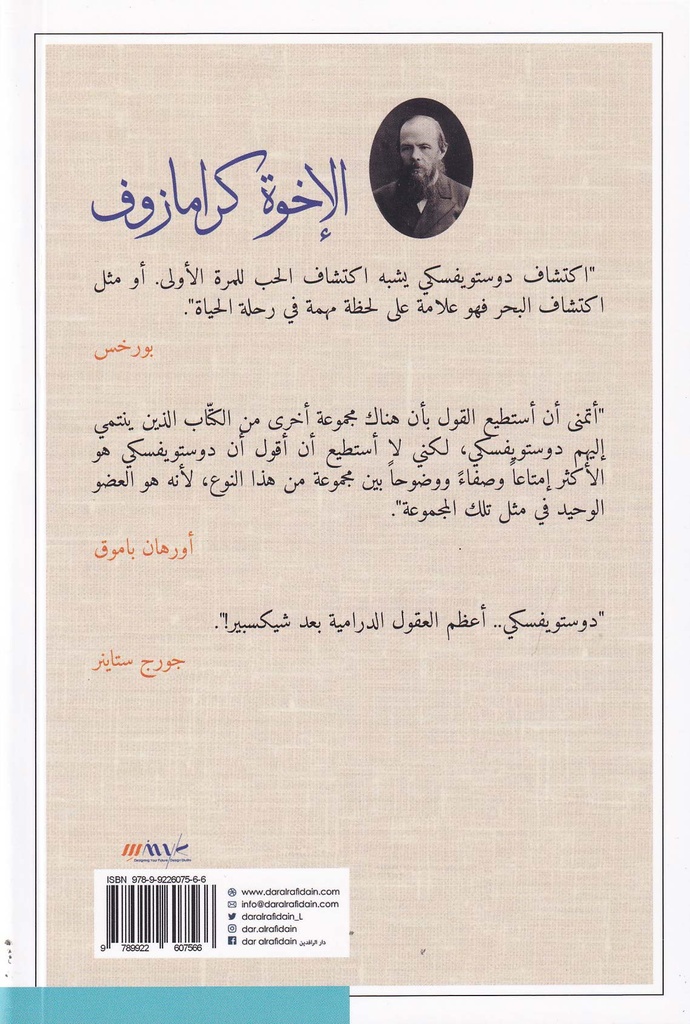 الإخوة كرامازوف
"اكتشاف دوستويفسكي يشبه اكتشاف الحب للمرة الأولى. أو مثل
اكتشاف البحر فهو علامة على لحظة مهمة في رحلة الحياة".
بورخس
"أتمنى أن أستطيع القول بأن هناك مجموعة أخرى من الكتّاب الذين ينتمي
إليهم دوستويفسكي، لكنني لا أستطيع أن أقول أن دوستويفسكي هو
الأكثر إمتاعاً وصفاءً ووضوحاً بين مجموعة من هذا النوع، لأنه هو العضو
الوحيد في مثل تلك المجموعة".
أورهان باموق
"دوستويفسكي.. أعظم العقول الدرامية بعد شيكسبير!".
جورج ستاينر
Designing Your Future Design Studio
ISBN 978-9-9226075-6-6
9 789922 607566
www.daralrafidain.com
info@daralrafidain.com
daralrafidain_L
dar.alrafidain
dar alrafidain دار الرافدين